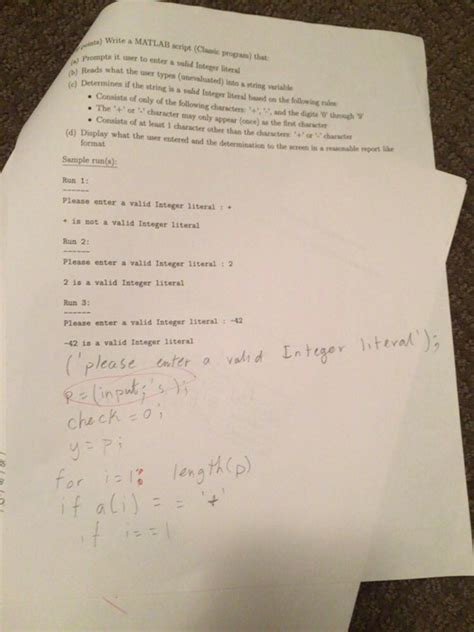 points) Write a MATLAB script (Classic program) that:
(a) Prompts it user to enter a valid Integer literal
(b) Reads what the user types (unevaluated) into a string variable
(c) Determines if the string is a valid Integer literal based on the following rules:
• Consists of only of the following characters: '+', '-', and the digits '0' through '9'
• The '+' or '-' character may only appear (once) as the first character
• Consists of at least 1 character other than the characters: '+' or '-' character
(d) Display what the user entered and the determination to the screen in a reasonable report like
format
Sample run(s):
Run 1:
------
Please enter a valid Integer literal : +
+ is not a valid Integer literal
Run 2:
------
Please enter a valid Integer literal : 2
2 is a valid Integer literal
Run 3:
------
Please enter a valid Integer literal : -42
-42 is a valid Integer literal
('please enter a valid Integer literal');
p = (input;'s');
check = 0;
y = p;
for i=1: length(p)
if a(i) = = '+'
if i = = 1